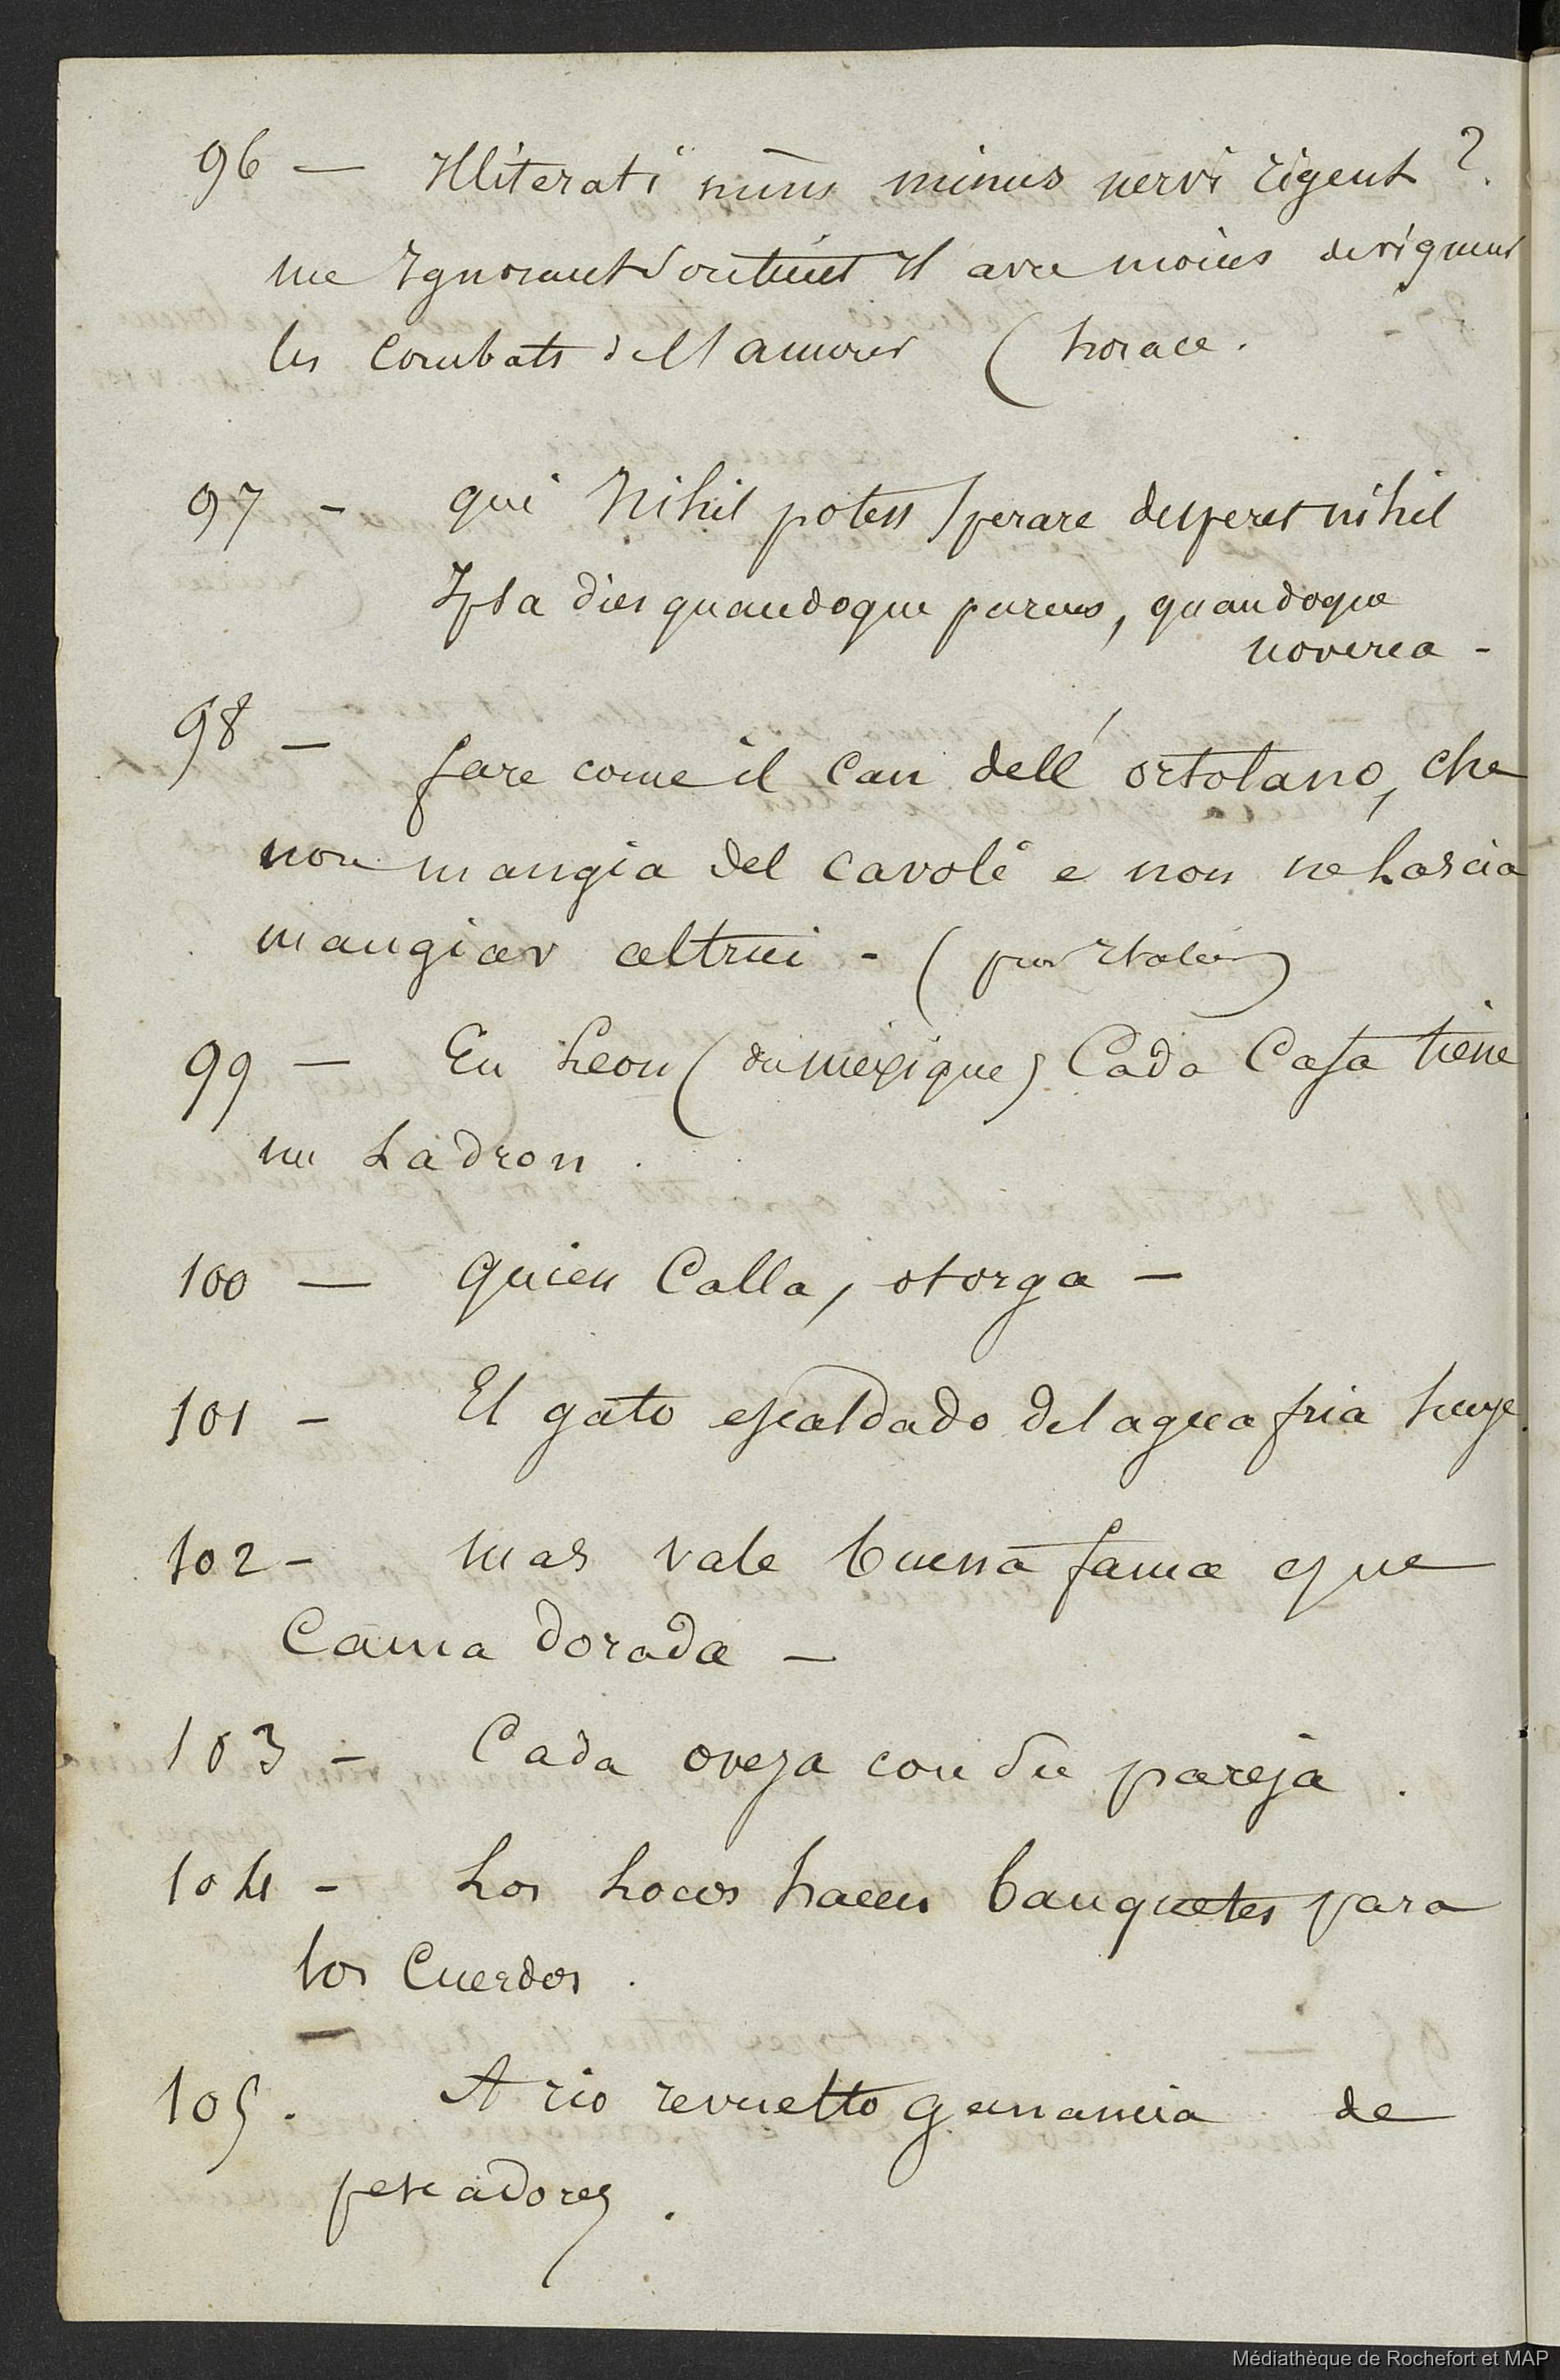 96 — Illiterati nùm minus nervi rigent ?
une Ignorant Soutient Il avec moins de vigueur
les Combats de l'amour ( horace .
97 - qui Nihil potest Sperare desperet nihil
Ipsa dies quandoque parens, quandoque
noverca -
98 — fare come il can dell' ortolano, che
non mangia del cavoli e non ne Lascia
mangiar altrui - ( prov Italien )
99 — En Leon ( du mexique ) Cada Casa tiene
un Ladron .
100 — Quien Calla, otorga —
101 - El gato escaldado del agua fria huye.
102 - mas vale buena fama que
Cama dorada —
103 - Cada oveja con Su pareja .
104 - Los Locos hacen banquetes para
los Cuerdos .
105 . A rio revuelto ganancia de
pescadores .
Médiathèque de Rochefort et MAP